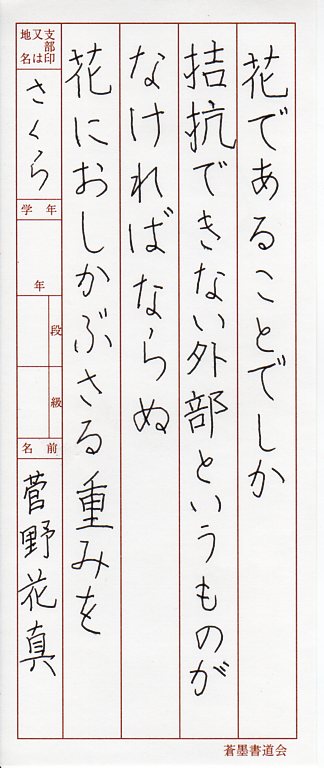 花であることでしか
拮抗できない外部というものが
なければならぬ
花におしかぶさる重みを
支部印
又は
地名
さくら
学年
年
段
級
名前
菅野花真
蒼墨書道会